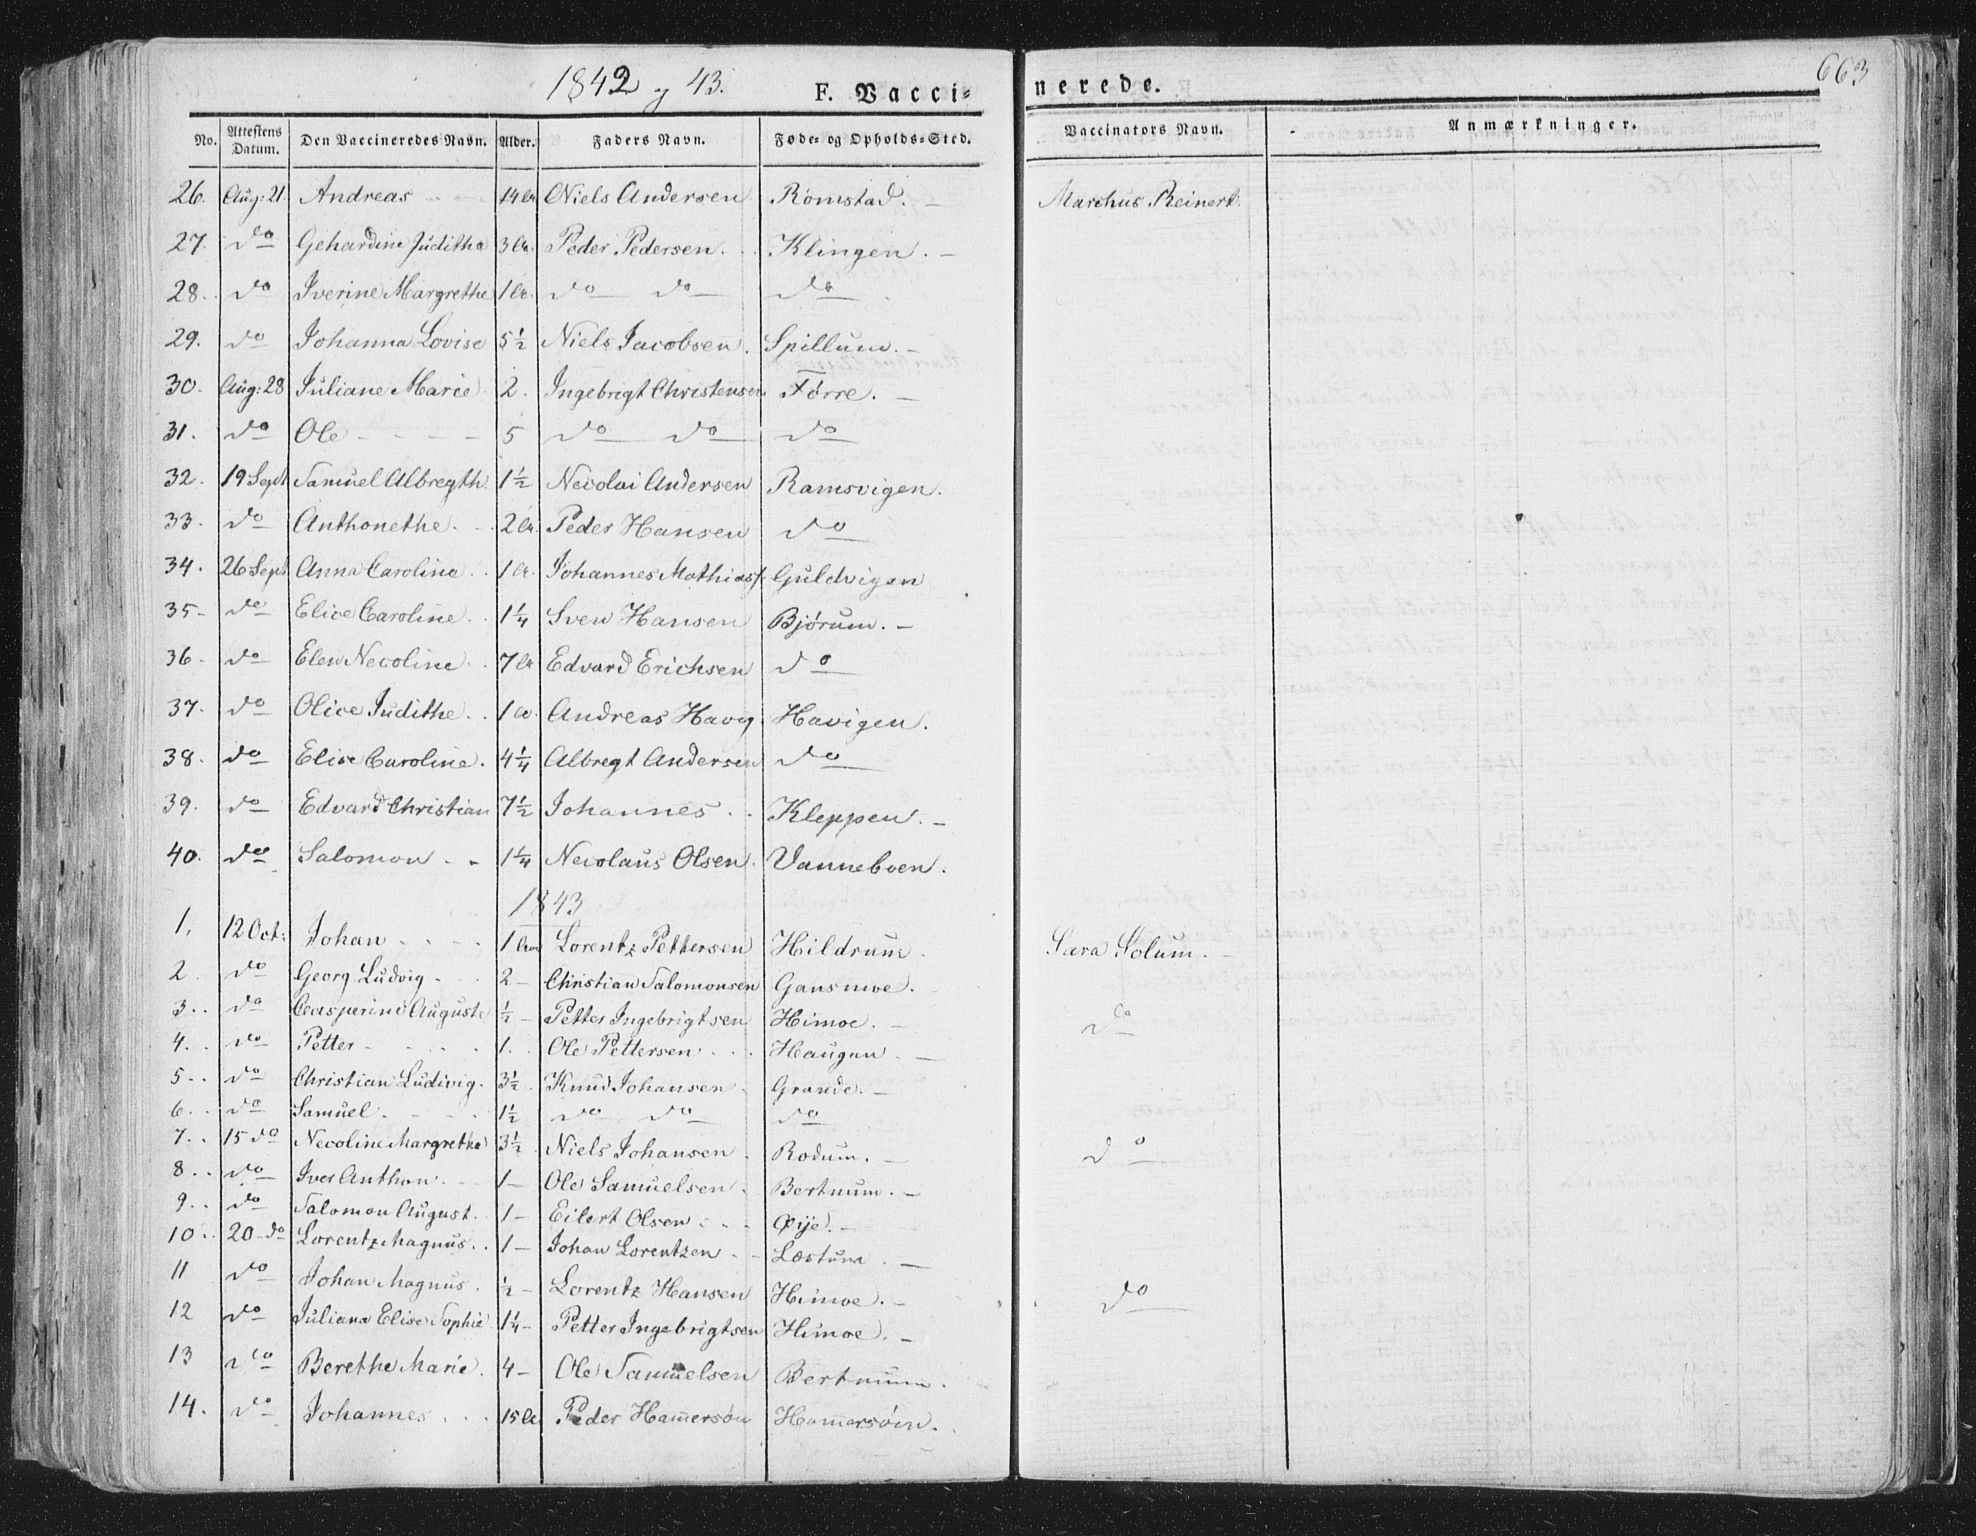 1842 og 43. F. Vaccinerede. 663
No. Attestens Datum. Den Vaccineredes Navn. Alder. Faders Navn. Føde- og Opholds-Sted. Vaccinators Navn. Anmærkninger.
26. Aug: 21. Andreas 14 Niels Andersen Römstad. Marchus Reinert.
27. do Gehardine Juditha 3 Peder Pedersen. Klingen.
28. do Iverine Margrethe 1 do do do
29. do Johanna Lovise 5½ Niels Jacobsen. Spillum.
30. Aug: 28 Juliane Marie 2. Ingebrigt Christensen Förre.
31. do Ole 5 do do do
32. 19 Sept Samuel Albregth 1½ Necolai Andersen Ramsvigen.
33. do Anthonethe. 2 Peder Hansen do
34. 26 Sept Anna Caroline. 1 Johannes Mathias Guldvigen
35 do Elice Caroline. 1¼ Sven Hansen Bjørum.
36. do Elen Necoline. 7 Edvard Erichsen do
37. do Olice Judithe. 1 Andreas Havig Havigen.
38. do Elice Caroline. 4¼ Albregt Andersen do
39. do Edvard Christian 7½ Johannes Kleppen.
40. do Salomon 1¼ Necolaus Olsen. Vanneboen.
1843
1. 12 Oct: Johan 1 Lorentz Pettersen Hildrum Sara Solum.
2. do Georg Ludvig 2 Christian Salomonsen Gansmoe.
3. do Casperine Auguste ½ Petter Ingebrigtsen Himoe. do
4. do Petter 1. Ole Pettersen Haugan
5. do Christian Ludivig. 3½ Knud Johansen Grande.
6. do Samuel. 1½ do do do
7. 15 do Necoline Margrethe 3½ Niels Johansen Rodum. do
8. do Iver Anthon. 1 Ole Samuelsen. Bertnum.
9. do Salomon August. 1 Eilert Olsen Øije.
10. 20 do Lorentz Magnus. 1 Johan Lorentzen Læstum
11 do Johan Magnus. ½ Lorentz Hansen Himoe. do
12 do Juliana Elise Sophie 1¼ Petter Ingebrigtsen Himoe.
13 do Berethe Marie. 4 Ole Samuelsen Bertnum.
14. do Johannes 15 Peder Hamersön Hamersöen.